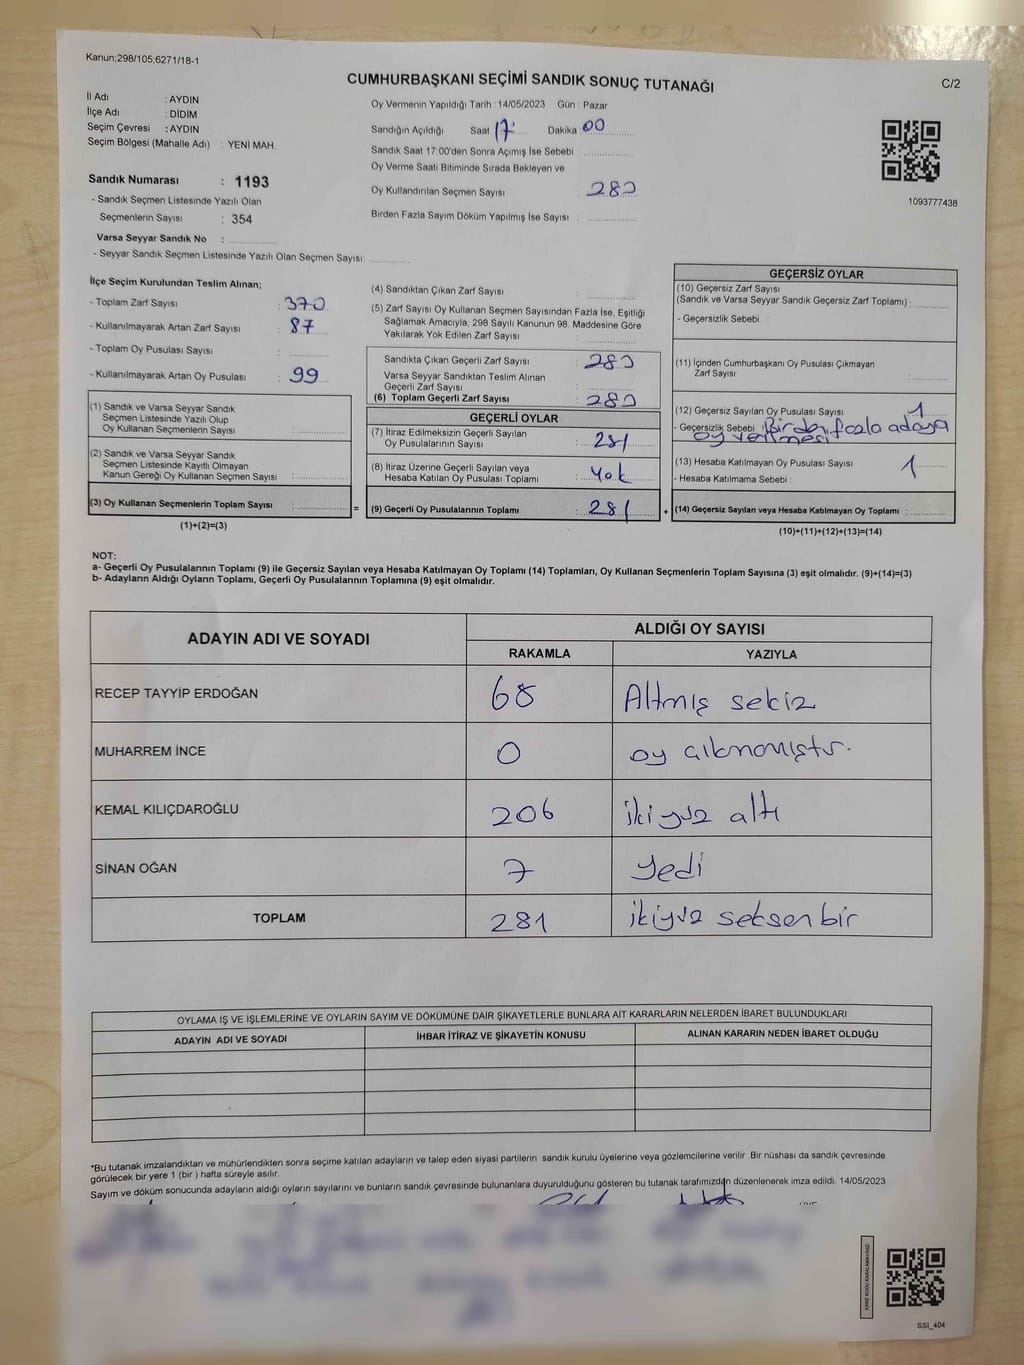 Kanun;298/105;6271/18-1
CUMHURBAŞKANI SEÇİMİ SANDIK SONUÇ TUTANAĞI
C/2
İl Adı : AYDIN
İlçe Adı : DİDİM
Seçim Çevresi : AYDIN
Seçim Bölgesi (Mahalle Adı) : YENİ MAH.
Sandık Numarası : 1193
- Sandık Seçmen Listesinde Yazılı Olan
Seçmenlerin Sayısı : 354
Varsa Seyyar Sandık No :
- Seyyar Sandık Seçmen Listesinde Yazılı Olan Seçmen Sayısı:
Oy Vermenin Yapıldığı Tarih : 14/05/2023 Gün : Pazar
Sandığın Açıldığı Saat 17 Dakika 00
Sandık Saat 17:00'den Sonra Açımış İse Sebebi :
Oy Verme Saati Bitiminde Sırada Bekleyen ve
Oy Kullandırılan Seçmen Sayısı : 283
Birden Fazla Sayım Döküm Yapılmış İse Sayısı :
1093777438
İlçe Seçim Kurulundan Teslim Alınan;
- Toplam Zarf Sayısı : 370
- Kullanılmayarak Artan Zarf Sayısı : 87
- Toplam Oy Pusulası Sayısı :
- Kullanılmayarak Artan Oy Pusulası : 99
(1) Sandık ve Varsa Seyyar Sandık
Seçmen Listesinde Yazılı Olup
Oy Kullanan Seçmenlerin Sayısı :
(2) Sandık ve Varsa Seyyar Sandık
Seçmen Listesinde Kayıtlı Olmayan
Kanun Gereği Oy Kullanan Seçmen Sayısı :
(3) Oy Kullanan Seçmenlerin Toplam Sayısı :
(1)+(2)=(3)
=
(4) Sandıktan Çıkan Zarf Sayısı :
(5) Zarf Sayısı Oy Kullanan Seçmen Sayısından Fazla İse, Eşitliği
Sağlamak Amacıyla, 298 Sayılı Kanunun 98. Maddesine Göre
Yakılarak Yok Edilen Zarf Sayısı :
Sandıkta Çıkan Geçerli Zarf Sayısı : 283
Varsa Seyyar Sandıktan Teslim Alınan
Geçerli Zarf Sayısı :
(6) Toplam Geçerli Zarf Sayısı : 283
GEÇERLİ OYLAR
(7) İtiraz Edilmeksizin Geçerli Sayılan
Oy Pusulalarının Sayısı : 281
(8) İtiraz Üzerine Geçerli Sayılan veya
Hesaba Katılan Oy Pusulası Toplamı : Yok
(9) Geçerli Oy Pusulalarının Toplamı : 281
+
GEÇERSİZ OYLAR
(10) Geçersiz Zarf Sayısı
(Sandık ve Varsa Seyyar Sandık Geçersiz Zarf Toplamı) :
- Geçersizlik Sebebi :
(11) İçinden Cumhurbaşkanı Oy Pusulası Çıkmayan
Zarf Sayısı :
(12) Geçersiz Sayılan Oy Pusulası Sayısı : 1
- Geçersizlik Sebebi : Birden fazla adaya
oy verilmesi
(13) Hesaba Katılmayan Oy Pusulası Sayısı : 1
- Hesaba Katılmama Sebebi :
(14) Geçersiz Sayılan veya Hesaba Katılmayan Oy Toplamı :
(10)+(11)+(12)+(13)=(14)
NOT:
a- Geçerli Oy Pusulalarının Toplamı (9) ile Geçersiz Sayılan veya Hesaba Katılmayan Oy Toplamı (14) Toplamları, Oy Kullanan Seçmenlerin Toplam Sayısına (3) eşit olmalıdır. (9)+(14)=(3)
b- Adayların Aldığı Oyların Toplamı, Geçerli Oy Pusulalarının Toplamına (9) eşit olmalıdır.
ADAYIN ADI VE SOYADI
ALDIĞI OY SAYISI
RAKAMLA YAZIYLA
RECEP TAYYİP ERDOĞAN 68 Altmış sekiz
MUHARREM İNCE 0 oy çıkmamıştır.
KEMAL KILIÇDAROĞLU 206 ikiyüz altı
SİNAN OĞAN 7 yedi
TOPLAM 281 ikiyüz seksen bir
OYLAMA İŞ VE İŞLEMLERİNE VE OYLARIN SAYIM VE DÖKÜMÜNE DAİR ŞİKAYETLERLE BUNLARA AİT KARARLARIN NELERDEN İBARET BULUNDUKLARI
ADAYIN ADI VE SOYADI İHBAR İTİRAZ VE ŞİKAYETİN KONUSU ALINAN KARARIN NEDEN İBARET OLDUĞU
*Bu tutanak imzalandıktan ve mühürlendikten sonra seçime katılan adayların ve talep eden siyasi partilerin sandık kurulu üyelerine veya gözlemcilerine verilir. Bir nüshası da sandık çevresinde
görülecek bir yere 1 (bir ) hafta süreyle asılır.
Sayım ve döküm sonucunda adayların aldığı oyların sayılarını ve bunların sandık çevresinde bulunanlara duyurulduğunu gösteren bu tutanak tarafımızdan düzenlenerek imza edildi. 14/05/2023
KARE KODU KARALAMAYINIZ!
SSI_404